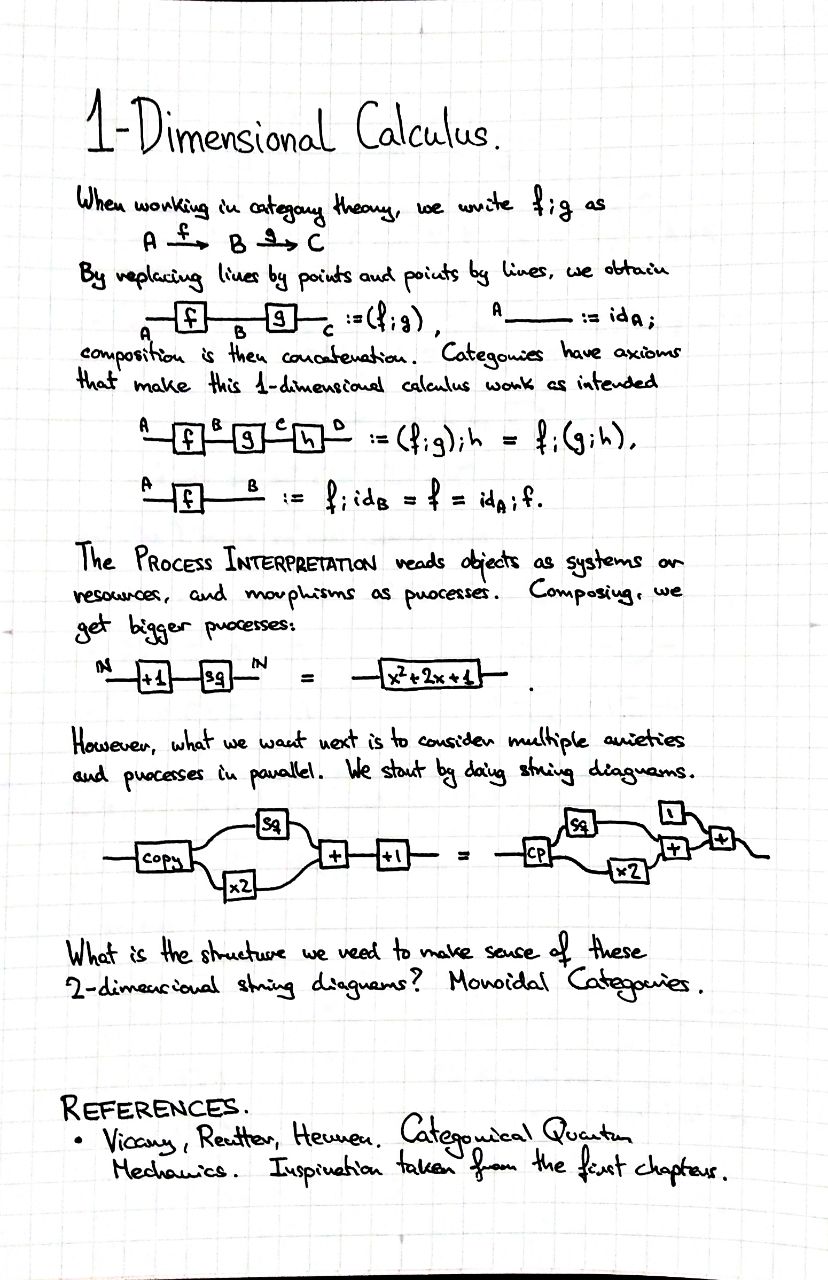 1-Dimensional Calculus.
When working in category theory, we write f;g as
A f B g C
By replacing lines by points and points by lines, we obtain
A f B g C :=(f;g), A := idA;
composition is then concatenation. Categories have axioms
that make this 1-dimensional calculus work as intended
A f B g C h D := (f;g);h = f;(g;h),
A f B := f;idB = f = idA;f.
The PROCESS INTERPRETATION reads objects as systems or
resources, and morphisms as processes. Composing, we
get bigger processes:
IN +1 sq IN = x²+2x+1 .
However, what we want next is to consider multiple
and processes in parallel. We start by doing string diagrams.
copy sq x2 + +1 = CP sq x2 + 1 +
What is the structure we need to make sense of these
2-dimensional string diagrams? Monoidal Categories.
REFERENCES.
• Vicary, Reutter, Heunen. Categorical Quantum
Mechanics. Inspiration taken from the first chapters.